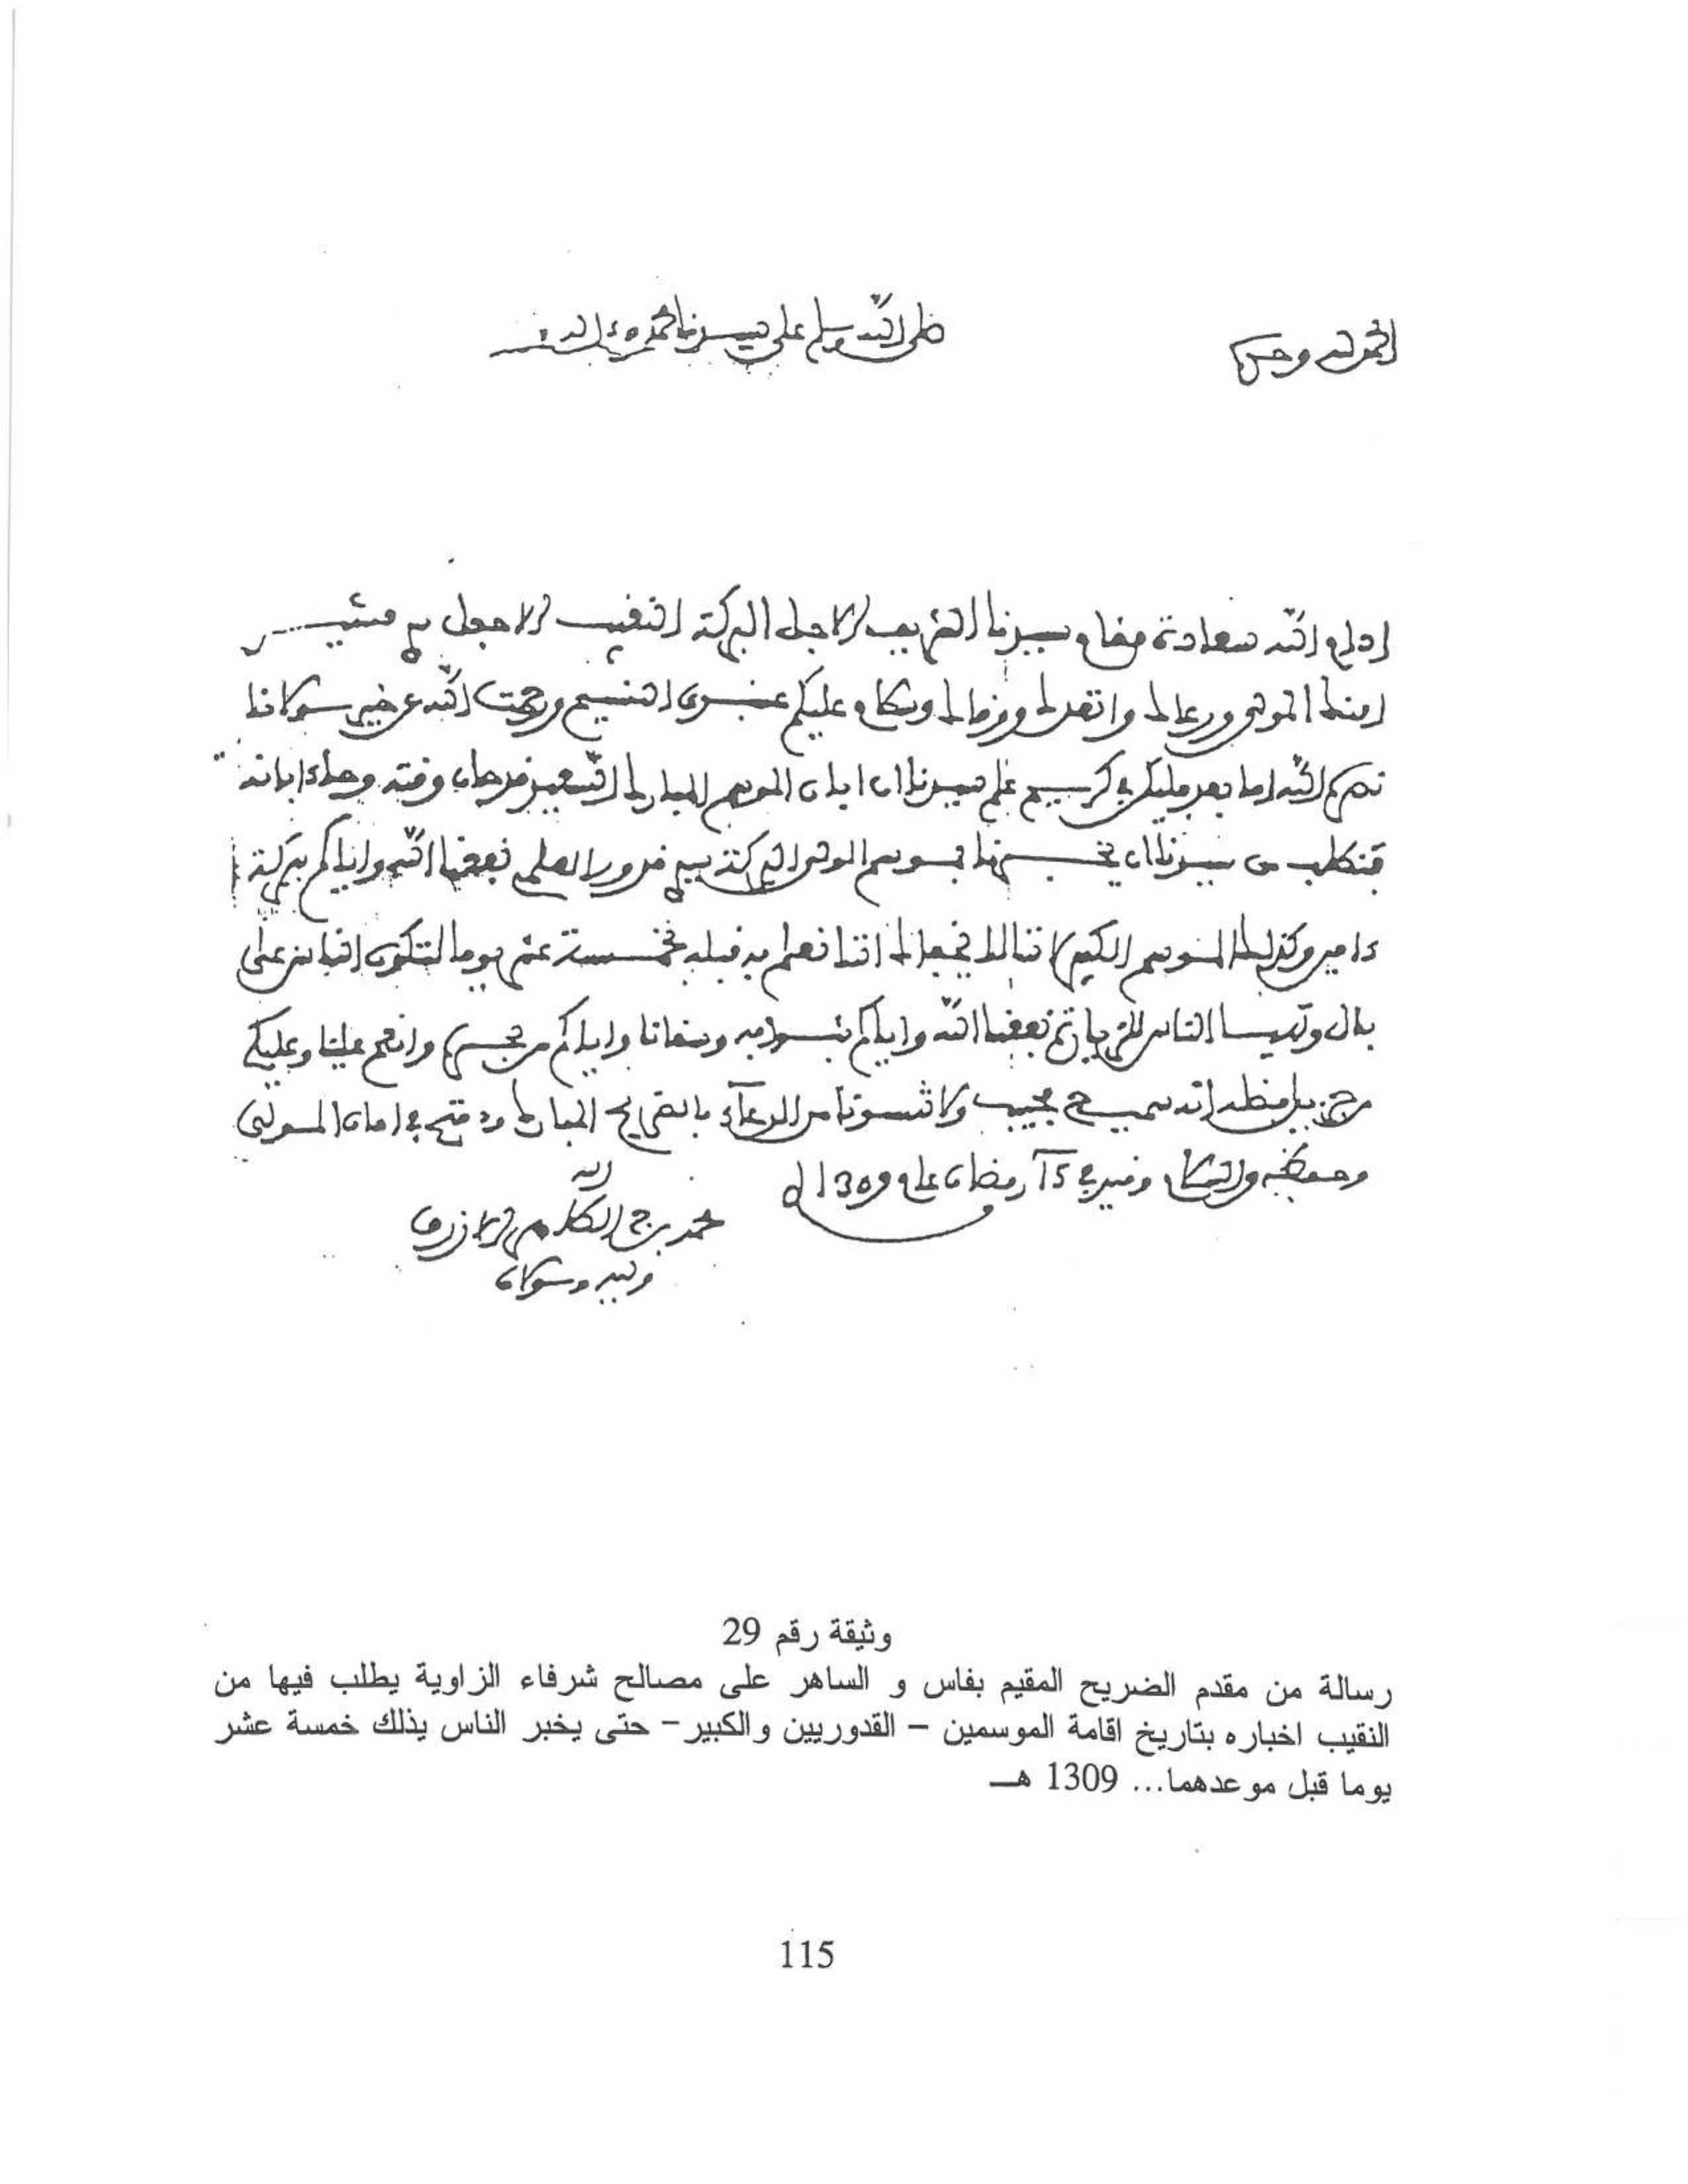 الحمد لله وحده
صلى الله وسلم على سيدنا محمد وءاله
ادام الله سعادة مقام سيدنا الشريف الاجل البركة النقيب الاجعل سي
امنك المولى ورعاك واتعدك وسلام عليكم ورحمت الله عن خير مولانا
نصركم الله اما بعد فليكن في كريم علم سيدنا ان ابان الموسم المبارك السعيد قد حان وقته وجاء ابانه
فنطلب من سيدنا ان يخبرنا بموسم الولي البركة سي قدور العلمي نفعنا الله واياكم ببركته
ءامين وكذلك الموسم الكبير اننا نعلم به قبله بخمسة عشر يوما لتكون الناس على
بال وتهيـا الناس للزيارة نفعنا الله واياكم وسقانا واياكم من بحره وانعم علينا وعليكم
بفضله انه سميع مجيب ولا تنسونا من الدعآء بالضريح المبارك ودمتم في امان المولى
وحفظه والسلام وقيد في 15 رمضان عام 1309
محمد بن الازرق
وليه
وثيقة رقم 29
رسالة من مقدم الضريح المقيم بفاس و الساهر على مصالح شرفاء الزاوية يطلب فيها من
النقيب اخباره بتاريخ اقامة الموسمين – القدوريين والكبير– حتى يخبر الناس يذلك خمسة عشر
يوما قبل موعدهما... 1309 هـ
115